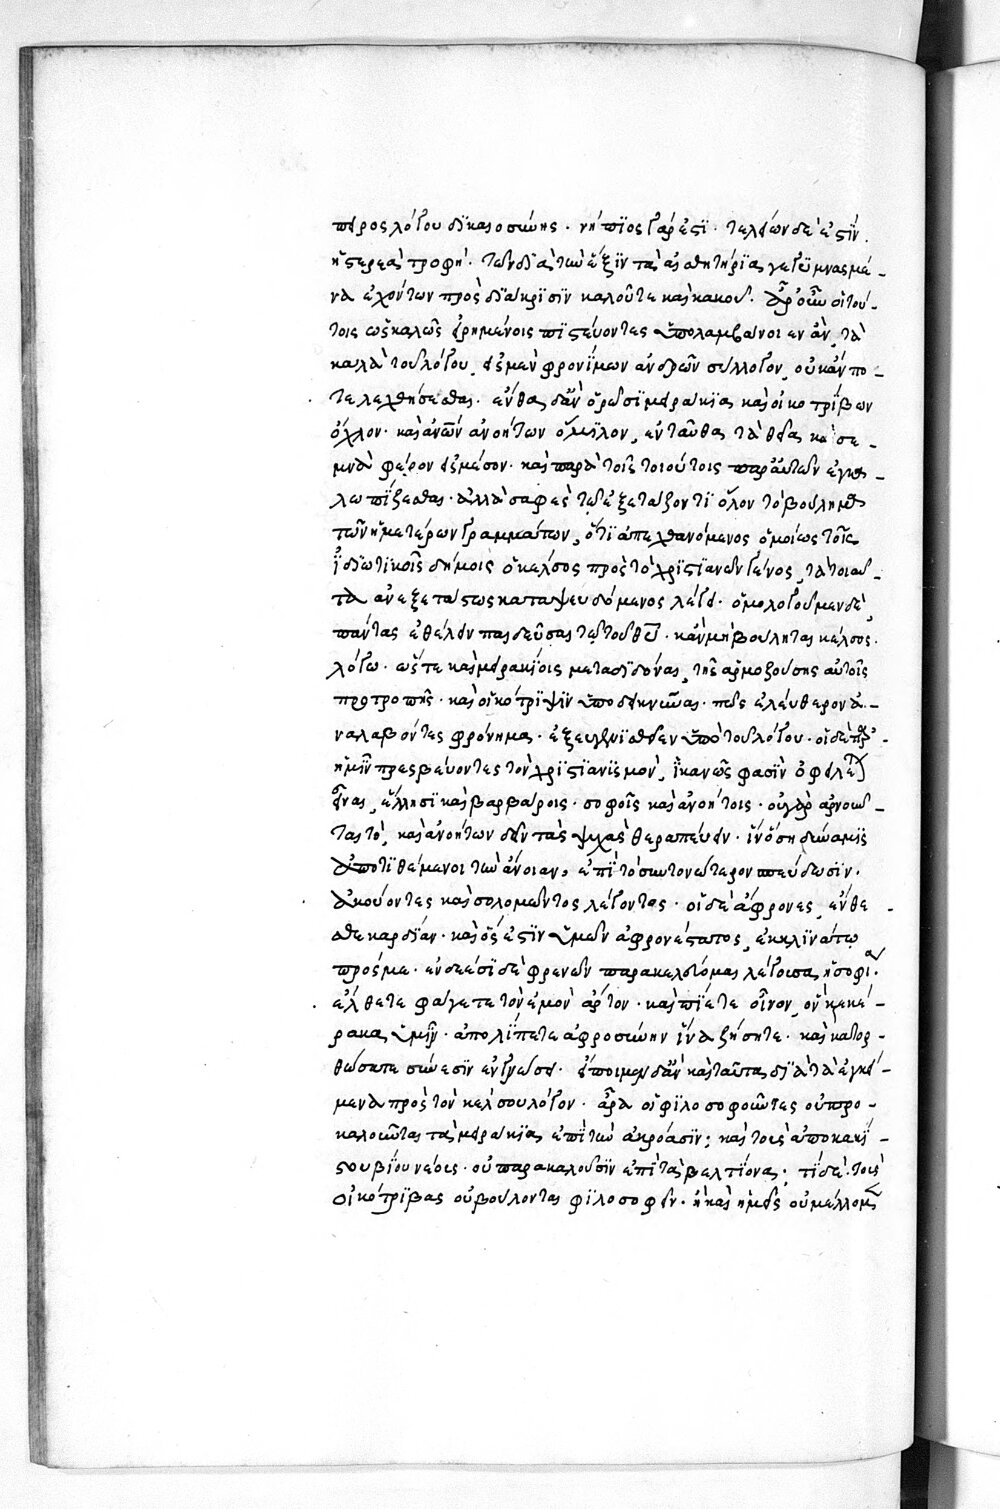 πειρος λόγου δικαιοσύνης· νήπιος γάρ ἐστι· τελείων δέ ἐστὶν
ἡ στερεὰ τροφή· τῶν διὰ τὴν ἕξιν τὰ αἰσθητήρια γεγυμνασμέ-
να ἐχόντων πρὸς διάκρισιν καλοῦ τε καὶ κακοῦ. ἆρ' οὖν οἱ τού-
τοις ὡς καλῶς εἰρημένοις πιστεύοντες ὑπολαμβάνοιεν ἂν, τὰ
καλὰ τοῦ λόγου, εἰς μὲν φρονίμων ἀνδρῶν σύλλογον, οὐκ ἄν πο-
τε λεχθήσεσθαι. ἔνθα δ' ἂν ὁρῶσι μειράκια καὶ οἰκοτρίβων
ὄχλον· καὶ ἀνῶν ἀνοήτων ὅμιλον, ἐνταῦθα τὰ θεῖα καὶ σε-
μνὰ φέρειν εἰς μέσον· καὶ παρὰ τοῖς τοιούτοις παρ' αὐτῶν ἐγκα-
λωπίζεσθαι· ἀλλὰ σαφὲς τῷ ἐξετάζοντι ὅλον τὸ βούλημα
τῶν ἡμετέρων γραμμάτων, ὅτι ἀπεχθανόμενος ὁμοίως τοῖς
ἰδιωτικοῖς δήμοις ὁ κέλσος πρὸς τὸ χριστιανῶν γένος, τὰ τοιαῦ-
τα ἀνεξετάστως καταψευδόμενος λέγει· ὁμολογοῦμεν δὲ
πάντας ἐθέλειν παιδεῦσαι τῷ τοῦ θυ̅· κἂν μὴ βούληται κέλσος.
λόγῳ· ὥστε καὶ μειρακίοις μεταδιδόναι, τῆς ἁρμοζούσης αὐτοῖς
προτροπῆς· καὶ οἰκότριψιν ὑποδεικνύναι· πῶς ἐλεύθερον ἀ-
ναλαβόντες φρόνημα· ἐξευγενισθεῖεν ὑπὸ τοῦ λόγου· οἱ δὲ παρ'
ἡμῖν πρεσβεύοντες τὸν χριστιανισμὸν, ἱκανῶς φασὶν ὀφειλέται
εἶναι, ἕλλησι καὶ βαρβάροις· σοφοῖς καὶ ἀνοήτοις· οὐ γὰρ ἀρνοῦν-
ται τὸ, καὶ ἀνοήτων δεῖν τὰς ψυχὰς θεραπεύειν· ἵν' ὅση δύναμις
ἀποτιθέμενοι τὴν ἄνοιαν, ἐπὶ τὸ συντονώτερον σπεύδωσιν·
ἀκούοντες καὶ σολομῶντος λέγοντος· οἱ δὲ ἄφρονες, ἔνθε-
σθε καρδίαν· καὶ ὅς ἐστιν ὑμῶν ἀφρονέστατος, ἐκκλινάτω
πρός με· ἐνδεέσι δὲ φρενῶν παρακελεύομαι λέγουσα, ἡ σοφία·
ἔλθετε φάγετε τὸν ἐμὸν ἄρτον· καὶ πίετε οἶνον, ὃν κεκέ-
ρακα ὑμῖν· ἀπολίπετε ἀφροσύνην ἵνα ζήσητε· καὶ κατορ-
θώσατε σύνεσιν ἐν γνώσει· εἴποιμι δ' ἂν καὶ ταῦτα διὰ τὰ ἐγκεί-
μενα πρὸς τὸν κέλσου λόγον· ἆρα οἱ φιλοσοφοῦντες οὐ προ-
καλοῦνται τὰ μειράκια ἐπὶ τὴν ἀκρόασιν; καὶ τοὺς ἀπὸ κακί-
στου βίου νέους· οὐ παρακαλοῦσιν ἐπὶ τὰ βελτίονα; τί δὲ, τοὺς
οἰκότριβας οὐ βούλονται φιλοσοφεῖν· ἢ καὶ ἡμεῖς οὐ μέλλομεν